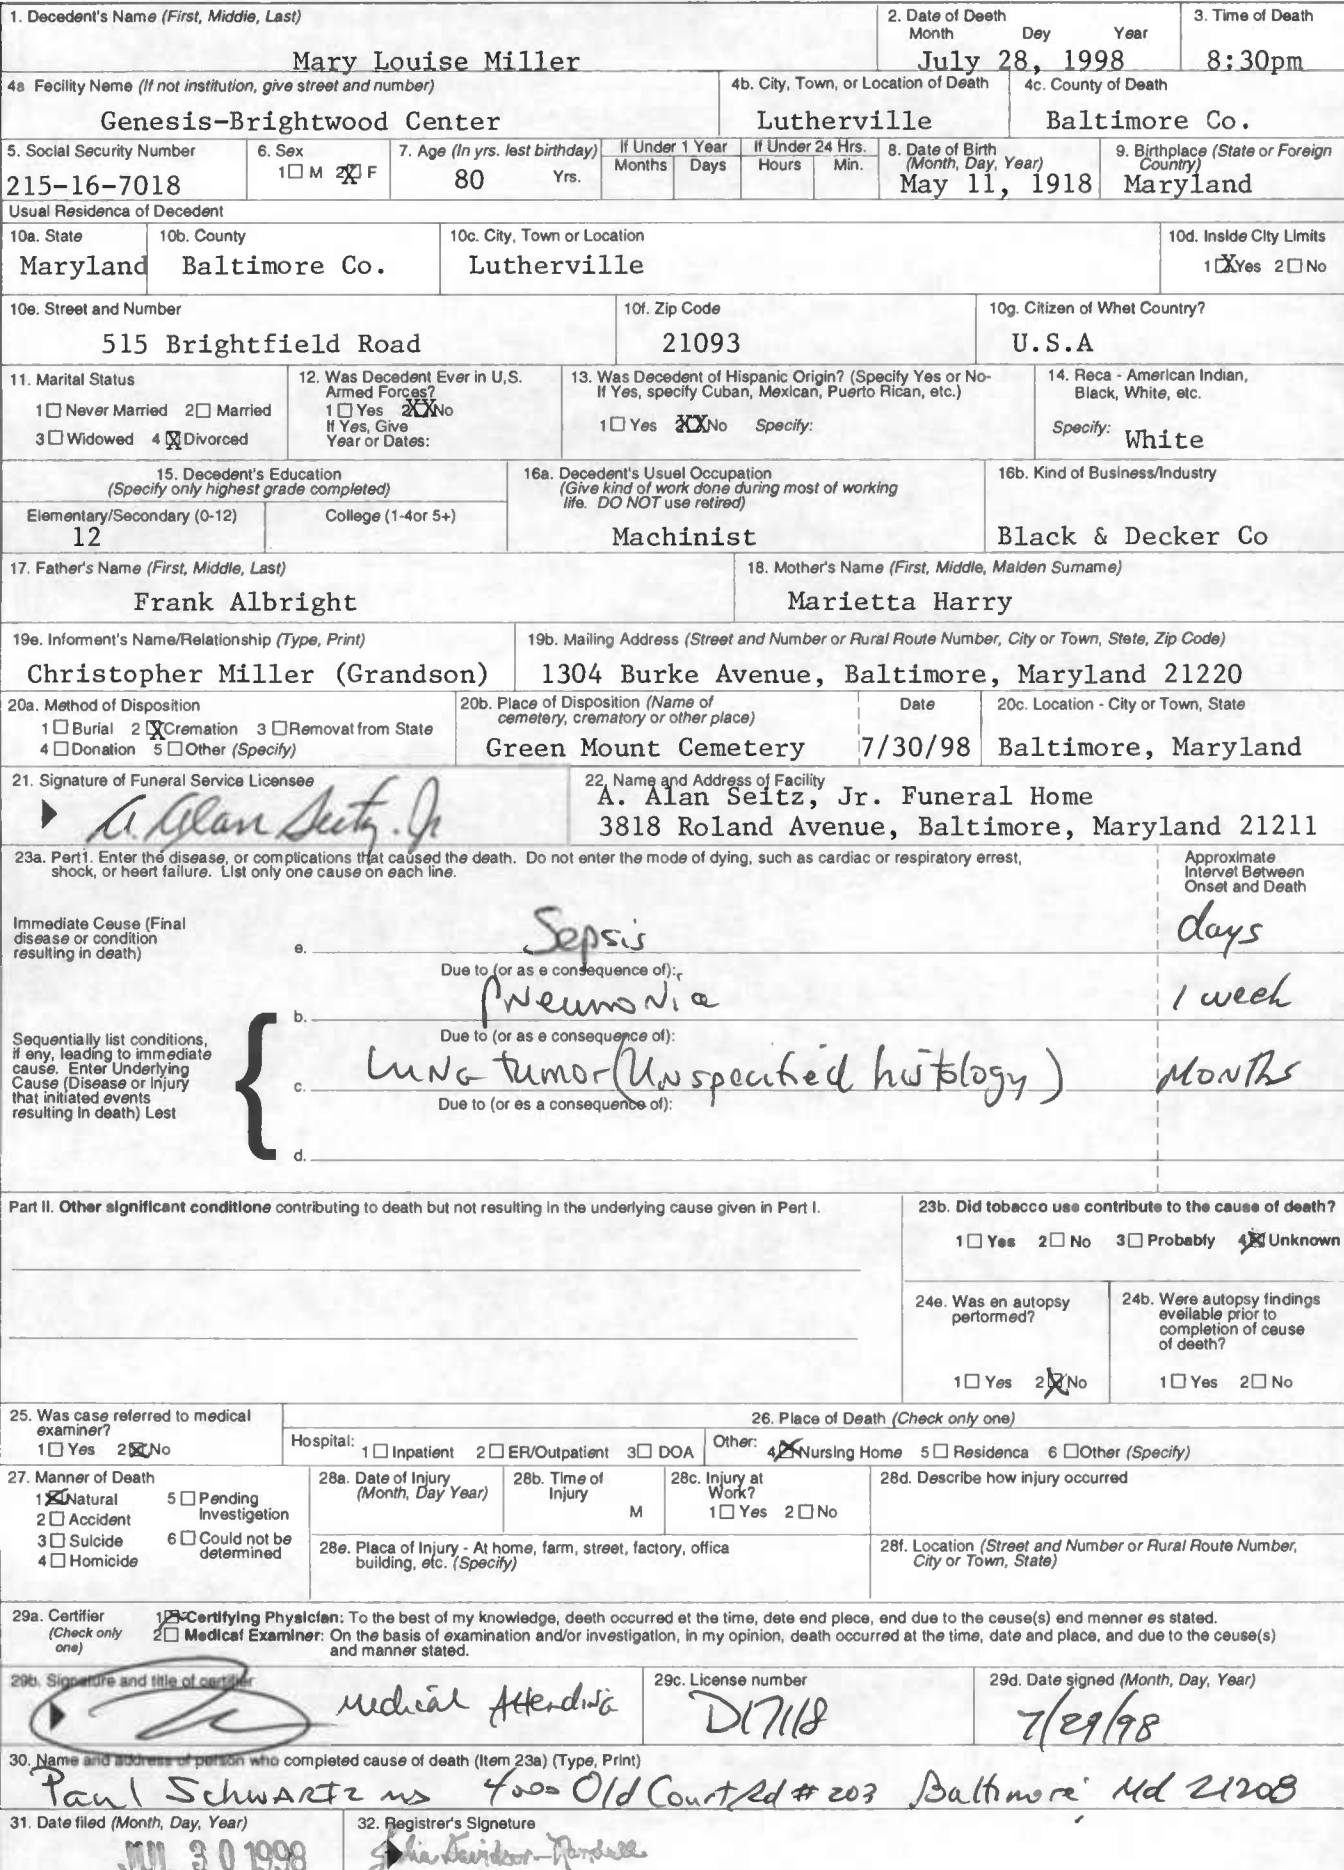 1. Decedent's Name (First, Middle, Last)
Mary Louise Miller
2. Date of Deeth
Month Dey Year
July 28, 1998
3. Time of Death
8:30pm
4a Fecility Name (If not institution, give street and number)
Genesis-Brightwood Center
4b. City, Town, or Location of Death
Lutherville
4c. County of Death
Baltimore Co.
5. Social Security Number
215-16-7018
6. Sex
1☐ M 2☒ F
7. Age (In yrs. lest birthday)
80 Yrs.
If Under 1 Year
Months Days
If Under 24 Hrs.
Hours Min.
8. Date of Birth
(Month, Day, Year)
May 11, 1918
9. Birthplace (State or Foreign
Country)
Maryland
Usual Residenca of Decedent
10a. State
Maryland
10b. County
Baltimore Co.
10c. City, Town or Location
Lutherville
10d. Inside City Limits
1☒Yes 2☐No
10e. Street and Number
515 Brightfield Road
10f. Zip Code
21093
10g. Citizen of Whet Country?
U.S.A
11. Marital Status
1☐Never Married 2☐ Married
3☐Widowed 4☒Divorced
12. Was Decedent Ever in U,S.
Armed Forces?
1☐Yes 2☒No
If Yes, Give
Year or Dates:
13. Was Decedent of Hispanic Origin? (Specify Yes or No-
If Yes, specify Cuban, Mexican, Puerto Rican, etc.)
1☐Yes 2☒No Specify:
14. Reca - American Indian,
Black, White, etc.
Specify: White
15. Decedent's Education
(Specify only highest grade completed)
Elementary/Secondary (0-12)
12
College (1-4or 5+)
16a. Decedent's Usuel Occupation
(Give kind of work done during most of working
life. DO NOT use retired)
Machinist
16b. Kind of Business/Industry
Black & Decker Co
17. Father's Name (First, Middle, Last)
Frank Albright
18. Mother's Name (First, Middle, Malden Surname)
Marietta Harry
19e. Informent's Name/Relationship (Type, Print)
Christopher Miller (Grandson)
19b. Mailing Address (Street and Number or Rural Route Number, City or Town, Stete, Zip Code)
1304 Burke Avenue, Baltimore, Maryland 21220
20a. Method of Disposition
1☐Burial 2☒Cremation 3☐Removat from State
4☐Donation 5☐Other (Specify)
20b. Place of Disposition (Name of
cemetery, crematory or other place)
Green Mount Cemetery
Date
7/30/98
20c. Location - City or Town, State
Baltimore, Maryland
21. Signature of Funeral Service Licensee
A. Alan Seitz, Jr
22. Name and Address of Facility
A. Alan Seitz, Jr. Funeral Home
3818 Roland Avenue, Baltimore, Maryland 21211
23a. Pert1. Enter the disease, or complications that caused the death. Do not enter the mode of dying, such as cardiac or respiratory errest,
shock, or heert failure. List only one cause on each line.
Approximate
Intervet Between
Onset and Death
Immediate Ceuse (Final
disease or condition
resulting in death)
e. Sepsis days
Due to (or as e consequence of):
b. Pneumonia 1 week
Sequentially list conditions,
if eny, leading to immediate
cause. Enter Underlying
Cause (Disease or Injury
that initiated events
resulting In death) Lest
Due to (or as e consequence of):
c. Lung tumor (Unspecified histology) Months
Due to (or es a consequence of):
d.
Part II. Other significant conditione contributing to death but not resulting in the underlying cause given in Pert I.
23b. Did tobacco use contribute to the cause of death?
1☐Yes 2☐No 3☐Probably 4☒Unknown
24e. Was en autopsy
pertormed?
1☐Yes 2☒No
24b. Were autopsy findings
eveilable prior to
completion of ceuse
of deeth?
1☐Yes 2☐No
25. Was case referred to medical
examiner?
1☐Yes 2☒No
26. Place of Death (Check only one)
Hospital: 1☐Inpatient 2☐ER/Outpatient 3☐ DOA Other: 4☒Nursing Home 5☐Residenca 6☐Other (Specify)
27. Manner of Death
1☒Natural 5☐Pending
Investigetion
2☐Accident
3☐Sulcide 6☐Could not be
determined
4☐Homicide
28a. Date of Injury
(Month, Day Year)
28b. Time of
Injury
M
28c. Injury at
Work?
1☐Yes 2☐No
28d. Describe how injury occurred
28e. Placa of Injury - At home, farm, street, factory, offica
building, etc. (Specify)
28f. Location (Street and Number or Rural Route Number,
City or Town, State)
29a. Certifier
(Check only
one)
1☒Certifying Physician: To the best of my knowledge, deeth occurred et the time, dete end plece, end due to the ceuse(s) end menner es stated.
2☐ Medical Examiner: On the basis of examination and/or investigation, in my opinion, death occurred at the time, date and place, and due to the ceuse(s)
and manner stated.
29b. Signature and title of certifier
Medical Attending
29c. License number
D17118
29d. Date signed (Month, Day, Year)
7/29/98
30. Name and address of person who completed cause of death (Item 23a) (Type, Print)
Paul Schwartz MD 4000 Old Court Rd # 203 Baltimore Md 21208
31. Date filed (Month, Day, Year)
JUL 30 1998
32. Registrer's Signeture